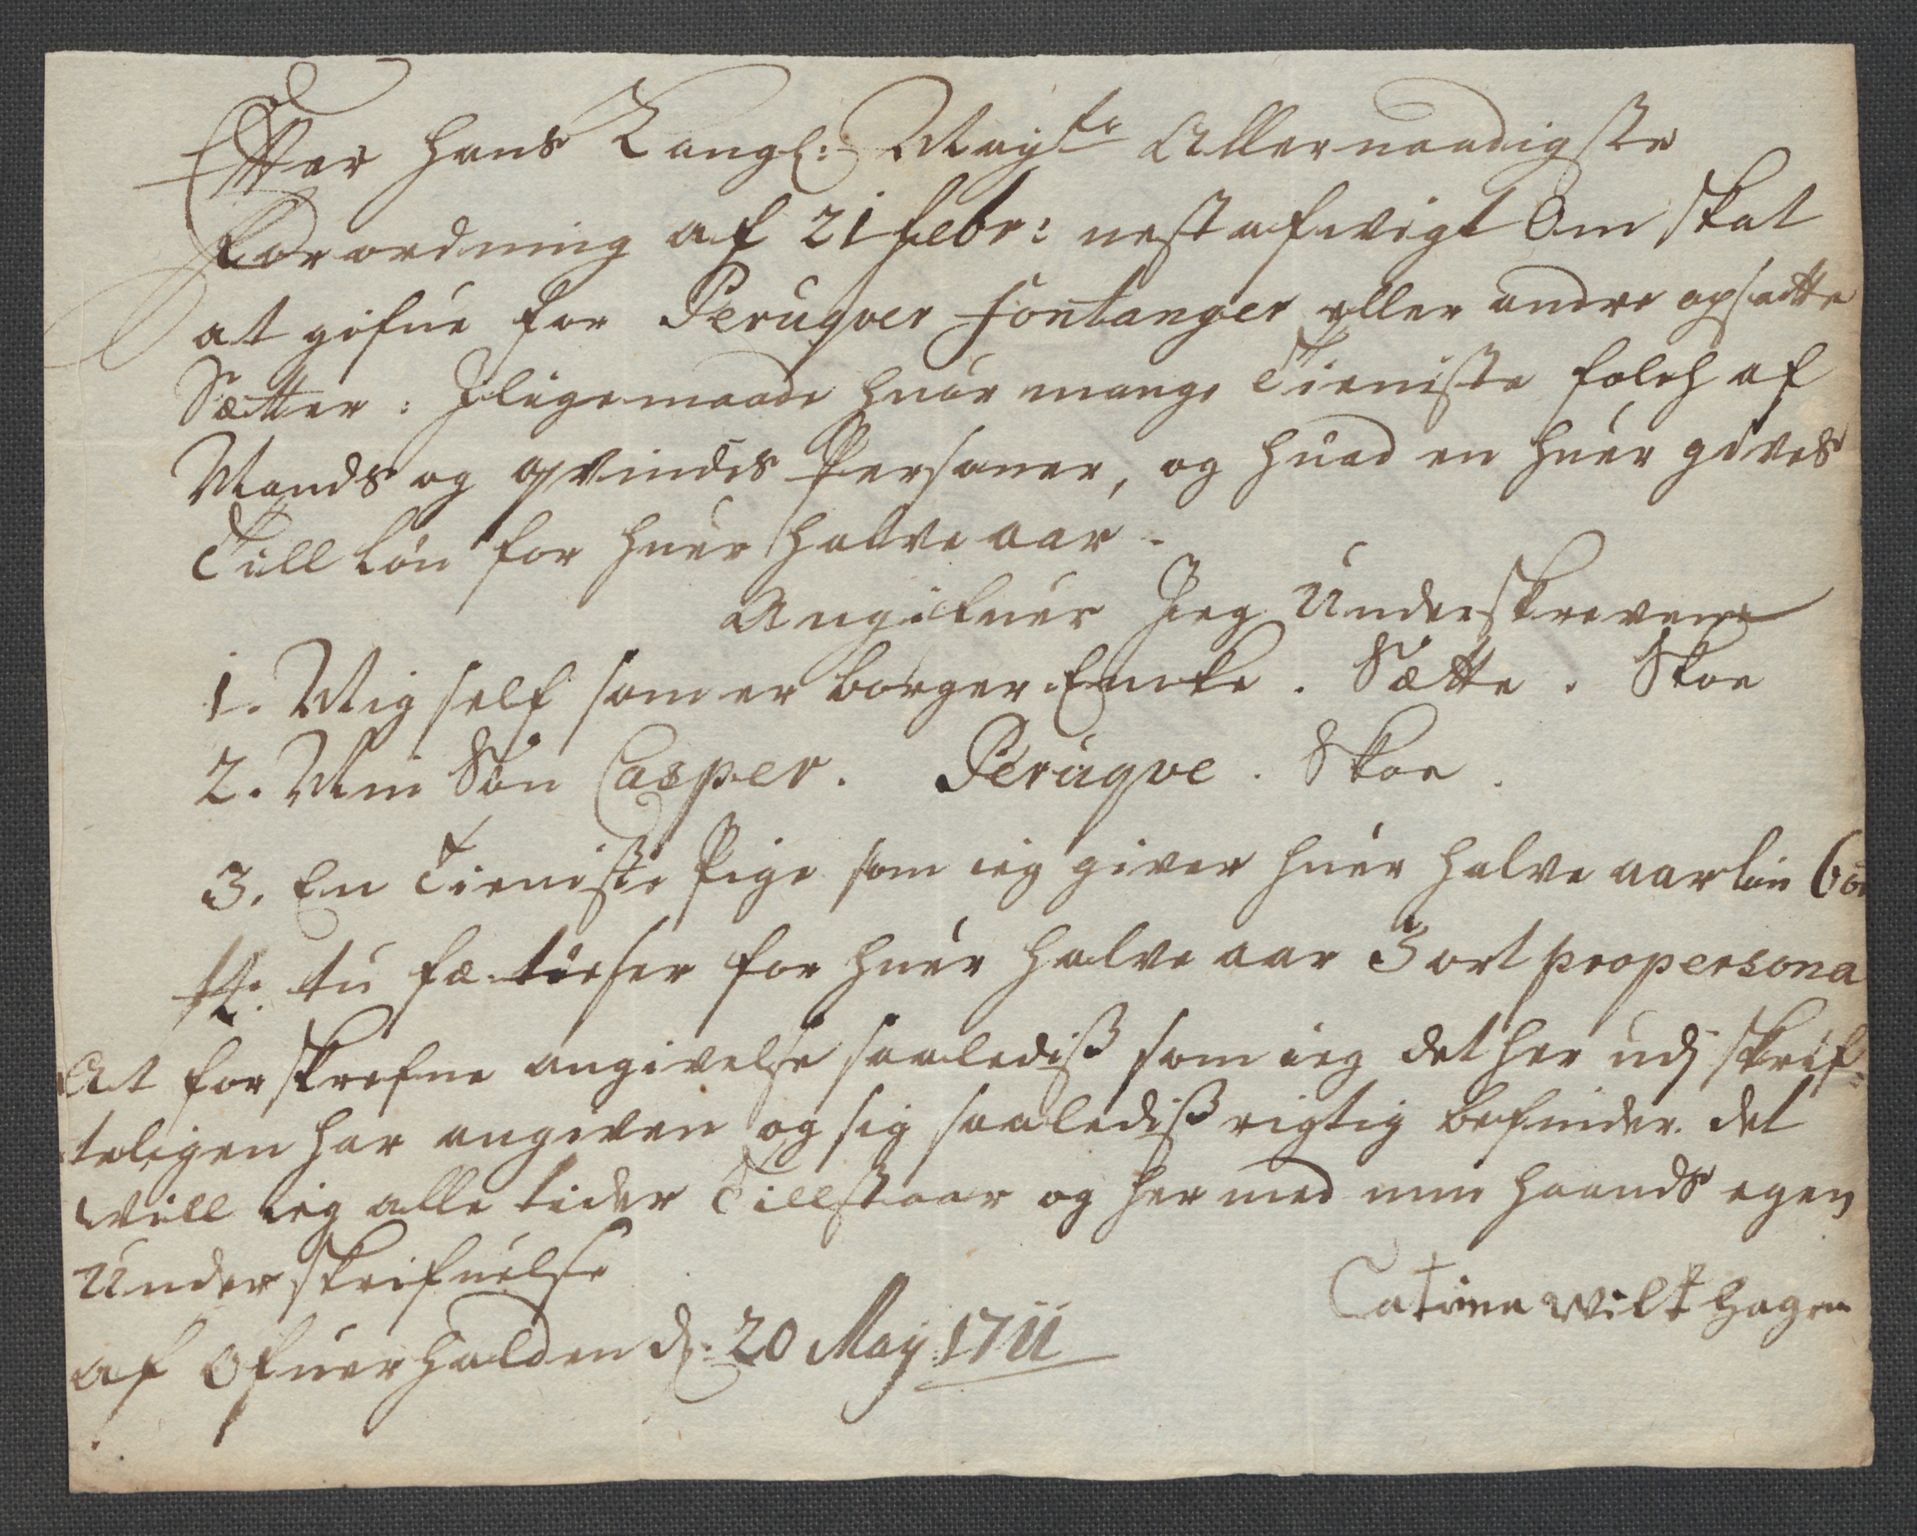 Efter hans Kongl: May:ts Allernaadigste
Forordning af 21 febr: nest afvigt Om skat
at gifue for Peruqver fontanger eller andre opsatte
Sætter: Jligemaade huor mange Tieniste folch af
Mands og qvindes Personer, og huad en huer gives
Till Løn for huer halve aar.
Angifuer Jeg Underskrevene
1. Mig self som er borger Encke. Sætte. Skoe
2. Min Søn Casper. Peruqve. Skoe.
3. En Tieniste Pige som ieg giver huer halve aar løn 6 ort
tu fæ for huer halve aar 3 ort propersona
At forskrefne angivelse saalediss som ieg det her udj skrif-
teligen har angiven og sig saalediss rigtig befinder. det
vill ieg alle tider Tillstaar og her med min haands egen
Underskrifuelse
Catrina Wilt hagen
af Ofuerhalden d: 20 May: 1711